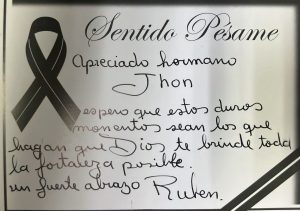 Sentido Pésame
Apreciado hermano
Jhon
espero que estos duros
momentos sean los que
hagan que Dios te brinde toda
la fortaleza posible.
un fuerte abrazo Ruben.